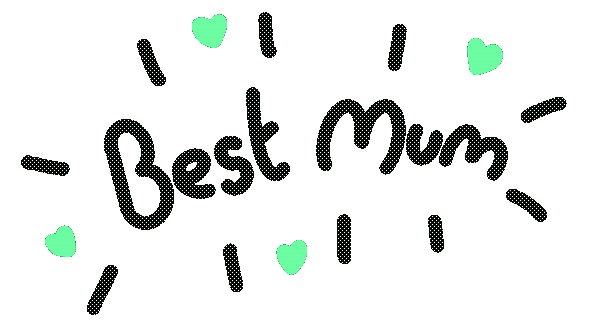 Best Mum